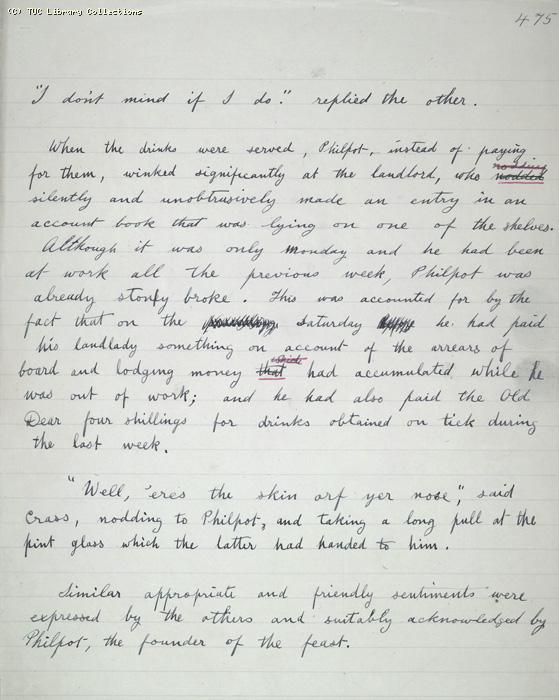 (C) TUC Library Collections
475
"I don't mind if I do." replied the other.
When the drinks were served, Philpot, instead of paying
nodding
for them, winked significantly at the landlord, who nodded
silently and unobtrusively made an entry in an
account book that was lying on one of the shelves.
Although it was only Monday and he had been
at work all the previous week, Philpot was
already stony broke. This was accounted for by the
fact that on the Saturday he had paid
his landlady something on account of the arrears of
board and lodging money that had accumulated while he
was out of work; and he had also paid the Old
Dear four shillings for drinks obtained on tick during
the last week.
"Well, 'eres the skin orf yer nose", said
Crass, nodding to Philpot, and taking a long pull at the
pint glass which the latter had handed to him.
Similar appropriate and friendly sentiments were
expressed by the others and suitably acknowledged by
Philpot, the founder of the feast.